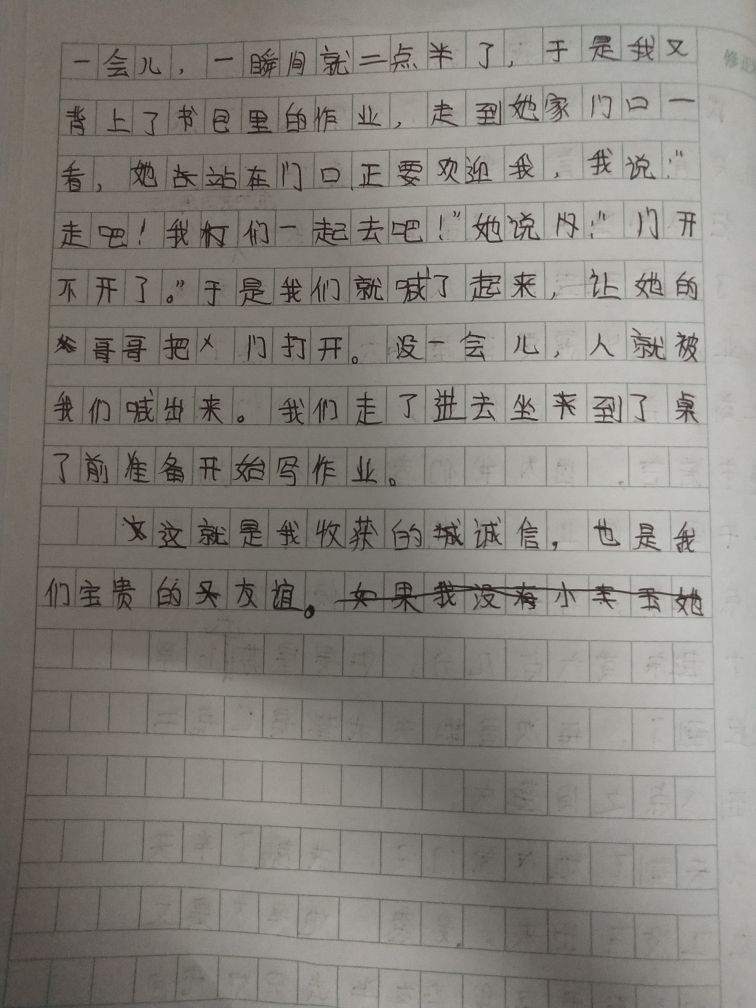 一会儿，一瞬间就二点半了，于是我又
背上了书包里的作业，走到她家门口一
看，她站在门口正要欢迎我，我说：“
走吧！我们一起去吧！”她说：“门开
不开了。”于是我们就喊了起来，让她的
哥哥把门打开。没一会儿，人就被
我们喊出来。我们走了进去坐到了桌
了前准备开始写作业。
这就是我收获的诚信，也是我
们宝贵的友谊。如果我没有小 她